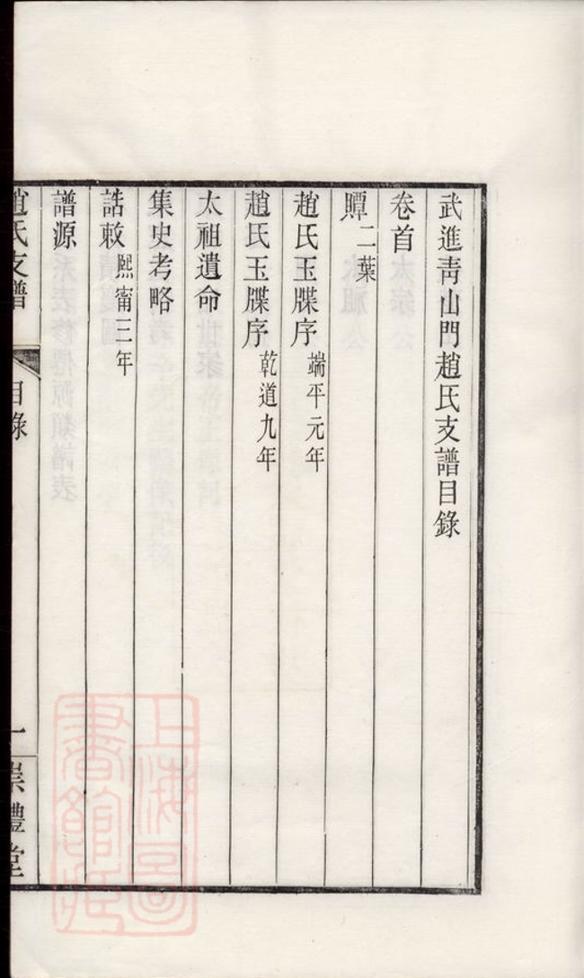 武進靑山門趙氏支譜目錄
卷首
贉二葉
趙氏玉牒序 端平元年
趙氏玉牒序 乾道九年
太祖遺命
集史考略
誥敕 熙甯三年
譜源
趙氏支譜 目錄 一 崇禮堂
上海圖書館藏